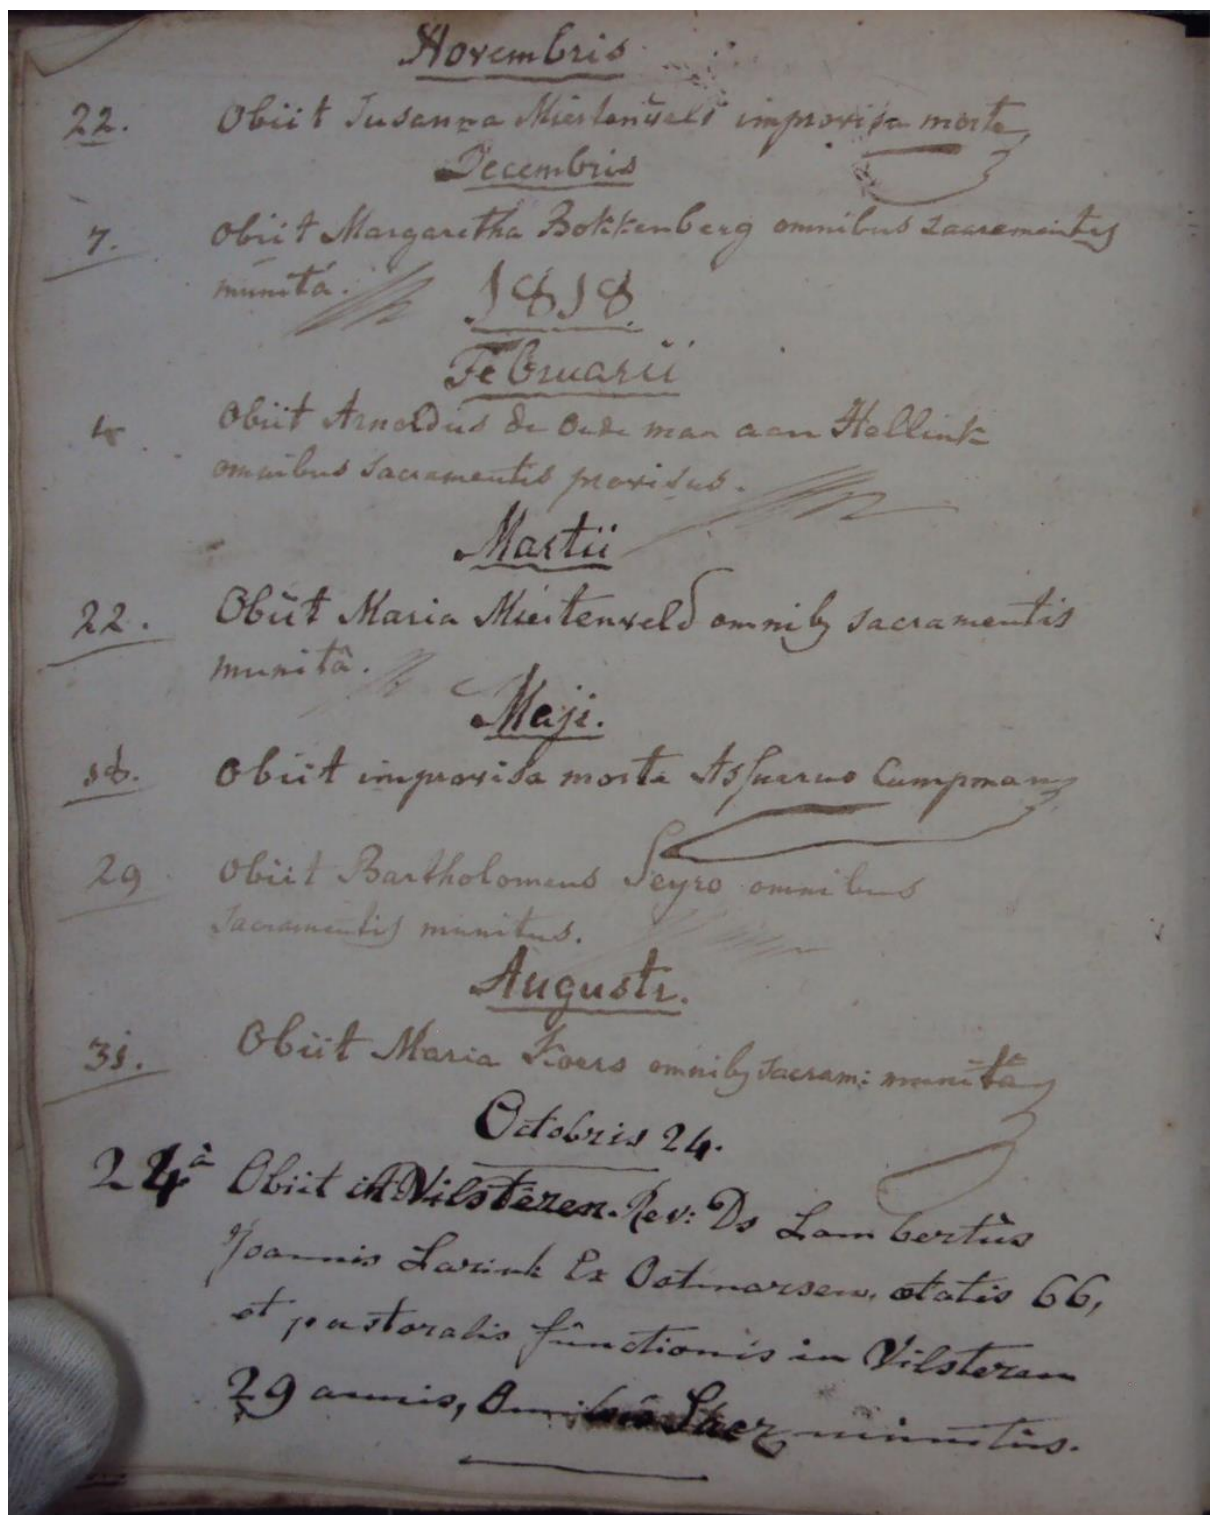 Novembris
22. Obiit Susanna improvisa morte
Decembris
7. Obiit Margaretha Bokkenberg omnibus sacramentis
munita.
1818.
Februarii
4. Obiit Arnoldus de Oude man aan Hellink
omnibus sacramentis provisus.
Martii
22. Obiit Maria Miertenveld omnib9 sacramentis
munitâ.
Maji.
18. Obiit improvisa morte Assuerus Campman
29 Obiit Bartholomeus Seyro omnibus
sacramentis munitus.
Augusti.
31. Obiit Maria Koers omnib9 sacram: munitâ
Octobris 24.
24.â Obiit in Vilsteren. Rev: Ds Lambertûs
Joannis Larink Ex Ootmarsen, etatis 66,
et pastoralis fûnctionis in Vilsteren
29 annis, Omnibûs Sacr munitûs.